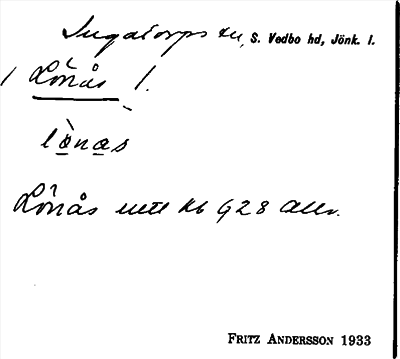 Ingatorps sn, S. Vedbo hd, Jönk. l.
1 Lönås l.
lònas
Lönås uttl kb 928 Allm.
FRITZ ANDERSSON 1933